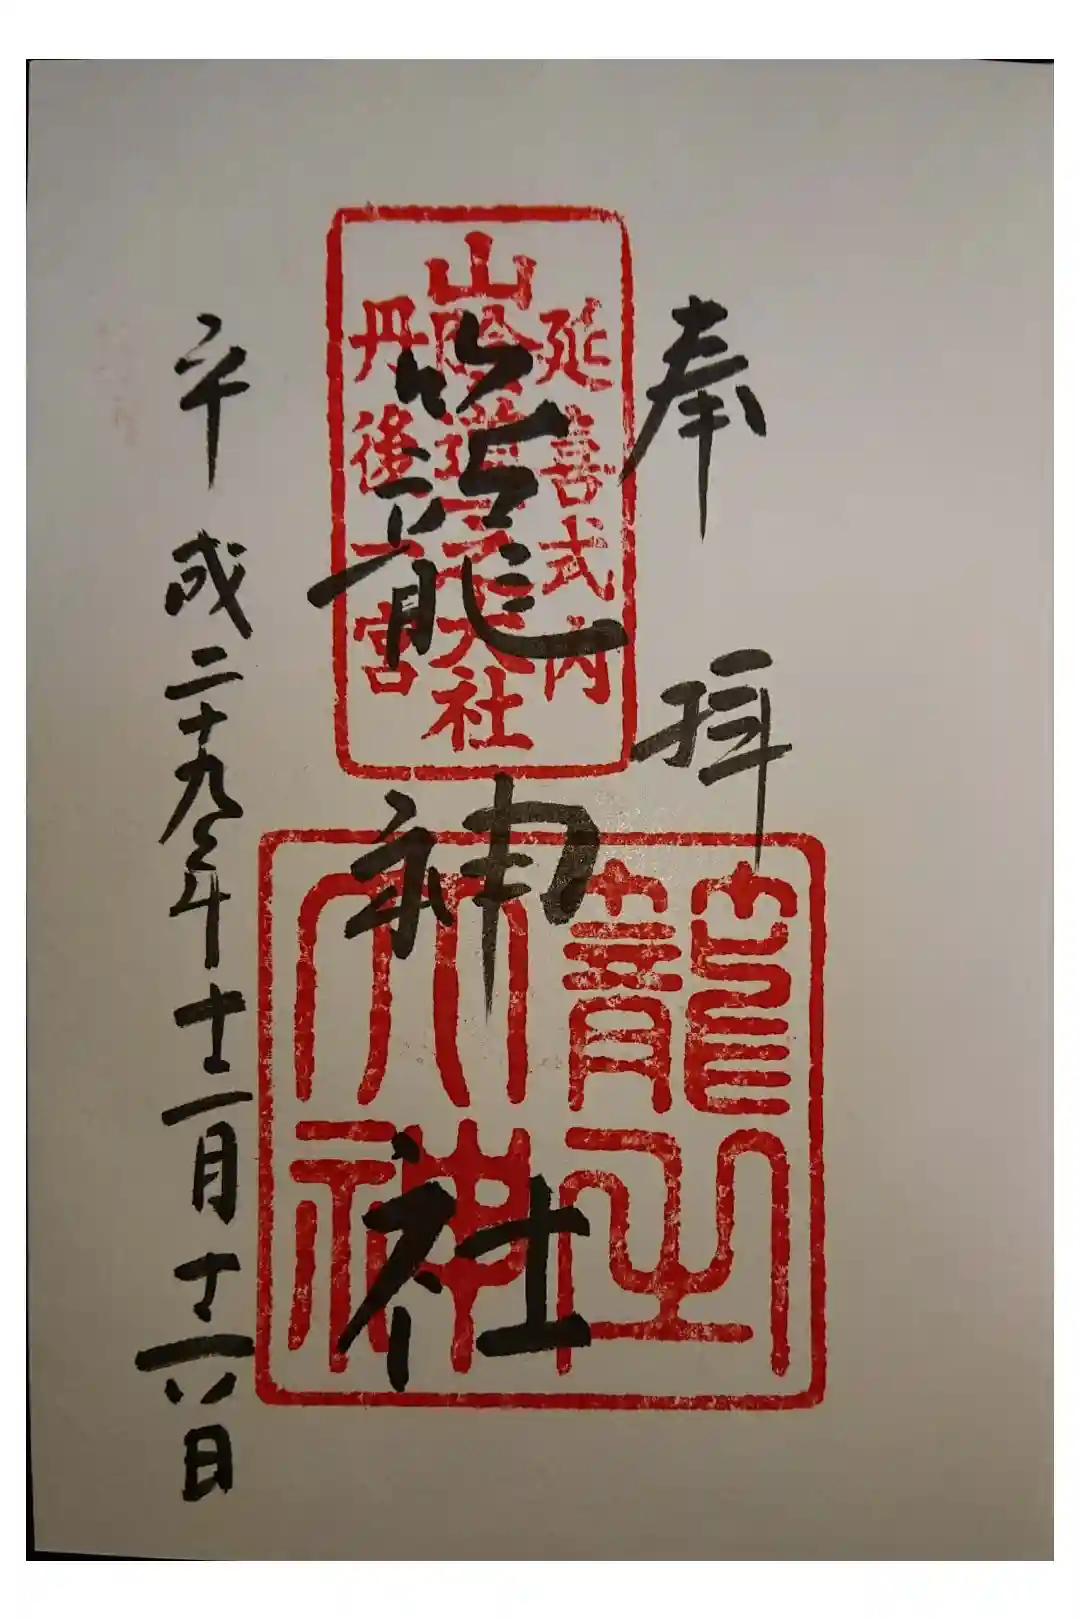 奉拝
延喜式内
山陰道一之大社
丹後一宮
籠神社
籠之大神
平成二十九年十二月十六日